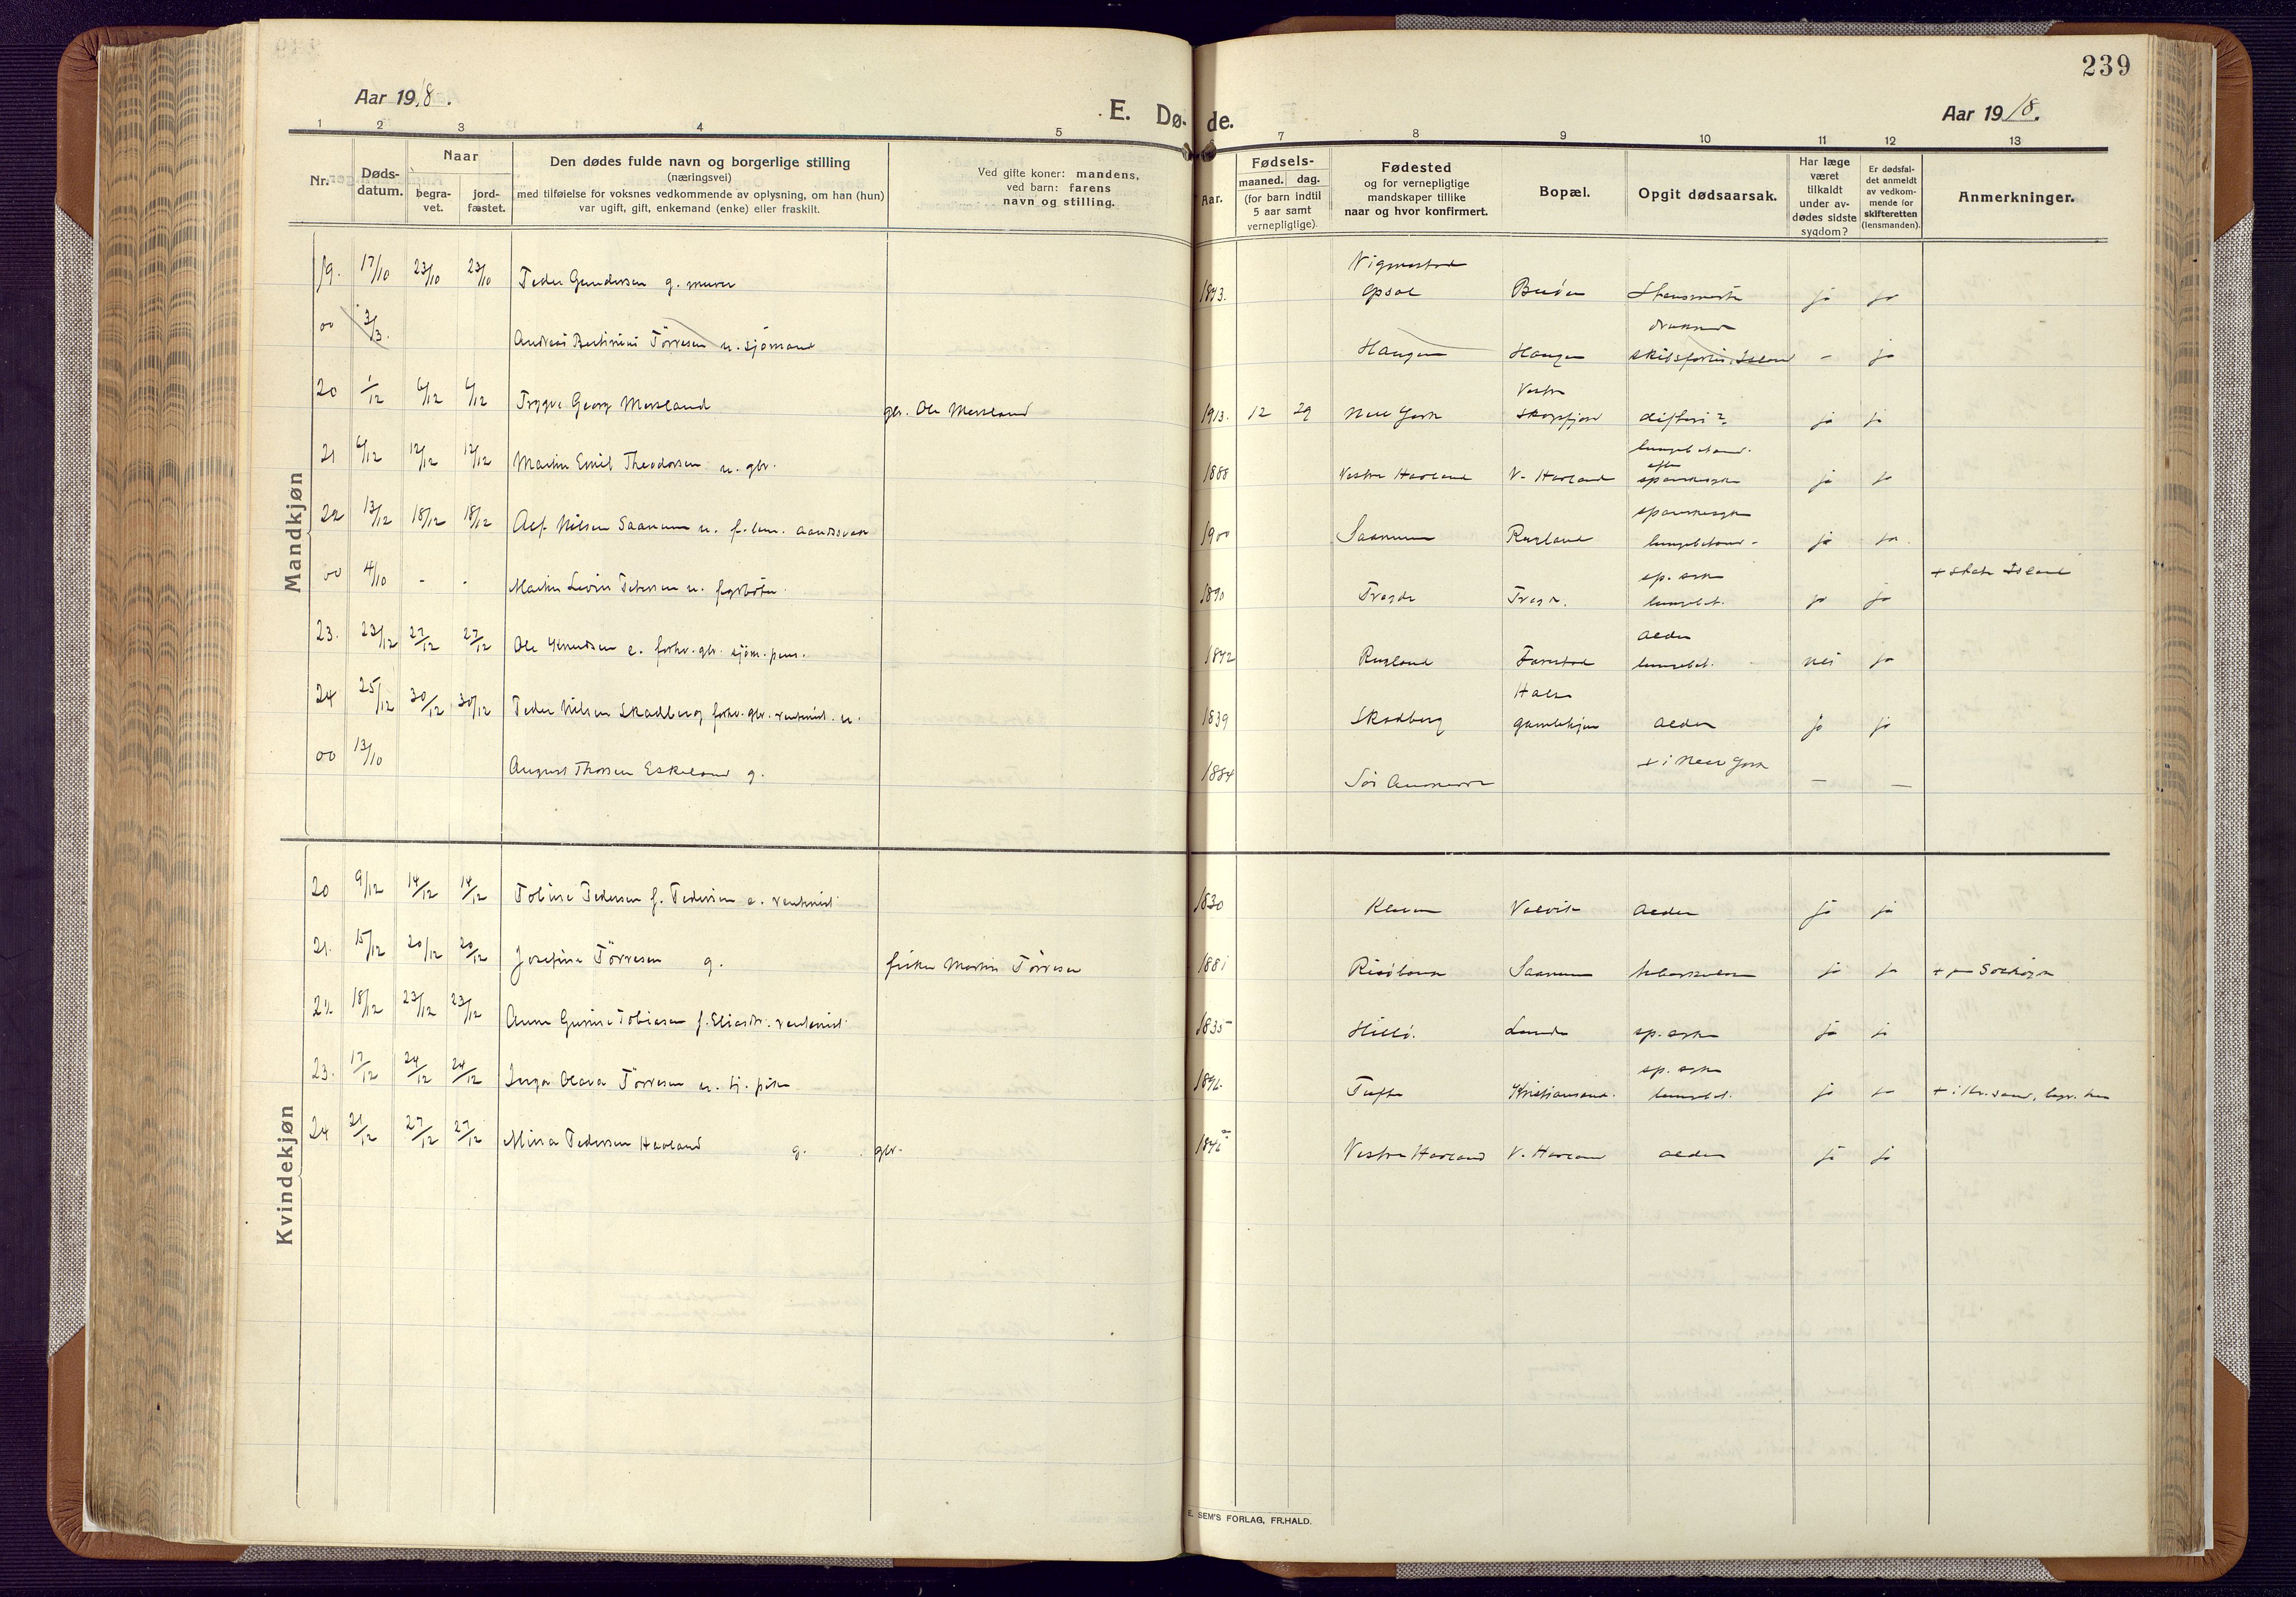 239
Aar 1918.
E. Dø-
de.
Aar 1918.
1 2 3 4 5 7 8 9 10 11 12 13
Nr.
Døds-
datum.
Naar
begra-
vet.
jord-
fæstet.
Den dødes fulde navn og borgerlige stilling
(næringsvei)
med tilføielse for voksnes vedkommende av oplysning, om han (hun)
var ugift, gift, enkemand (enke) eller fraskilt.
Ved gifte koner: mandens,
ved barn: farens
navn og stilling.
Aar.
Fødsels-
maaned. dag.
(for barn indtil
5 aar samt
vernepligtige).
Fødested
og for vernepligtige
mandskaper tillike
naar og hvor konfirmert.
Bopæl.
Opgit dødsaarsak.
Har læge
været
tilkaldt
under av-
dødes sidste
sygdom?
Er dødsfal-
det anmeldt
av vedkom-
mende for
skifteretten
(lensmanden).
Anmerkninger.
Mandkjøn
19. 17/10 23/10 23/10 Peder Gundersen g. murer 1843. Opsal ja ja
00 3/3. Andreas Tørresen u. sjømand Haugen Haugen skibsforlis, Island - ja
20 1/12 6/12 6/12 Trygve Georg Mersland gbr. Ole Mersland 1913. 12 29 New York Vestre Skogsfjord difteri? ja ja
21 6/12 12/12 12/12 Martin Emil Theodorsen u. gbr. 1888 Vestre Haaland V. Haaland lungebetænd. efter spanskesyke ja ja
22 13/12 18/12 18/12 Alf Nilsen Saanum u. aandssvak 1900 Saanum spanskesyke lungebetænd. ja ja
00 4/10 - - Martin Petersen u. fyrbøter. 1890 Tregde Tregde. sp. syke lungebet. ja ja + State Island
23. 23/12 27/12 27/12 Ole Knudsen e. forhv. gbr. sjøm. pens. 1842 alder lungebet. nei ja
24 25/12 30/12 30/12 Peder Nilsen Skadberg forhv. gbr. u. 1839 Skadberg Halse gamlehjem alder ja ja
00 13/10 August Thorsen Eskeland g. 1884 + i New York — —
Kvindekjøn
20 9/12 14/12 14/12 Tobine Pedersen f. Pedersen e. 1830 Kleven Valvik alder ja ja
21. 15/12 20/12 20/12 Josefine Tørresen g. fisker Martin Tørresen 1881 Saanum tuberkulose ja ja
22 18/12 23/12 23/12 Anne Tobiasen f. Eliasdtr. 1835 Hillø. Lunde sp. syke ja ja
23. 17/12 24/12 24/12 Inga Olava Tørresen u. tj. pike Tufte Kristiansand. sp. syke lungebet. ja ja + i Kr.sand, begr. her
24 21/12 27/12 27/12 Mina Pedersen Haaland g. gbr. Vestre Haaland V. Haaland alder ja ja
E. SEM'S FORLAG, FR.HALD.